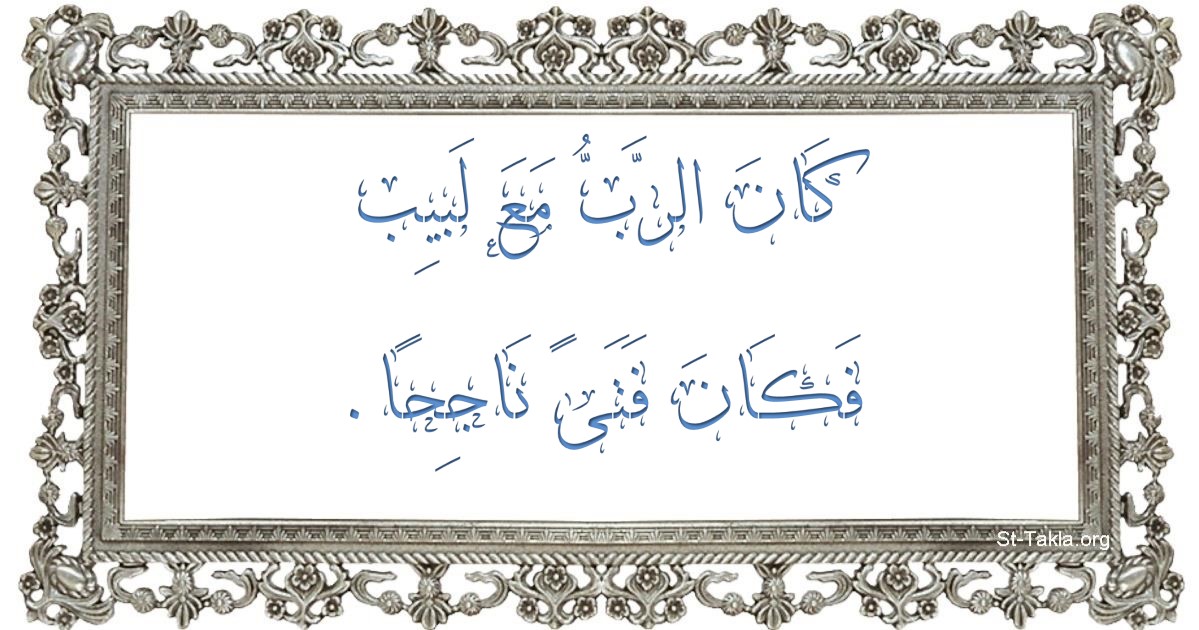 كَانَ الرَّبُّ مَعَ لَبِيبِ
فَكَانَ فَتَىً نَاجِحًا .
St-Takla.org